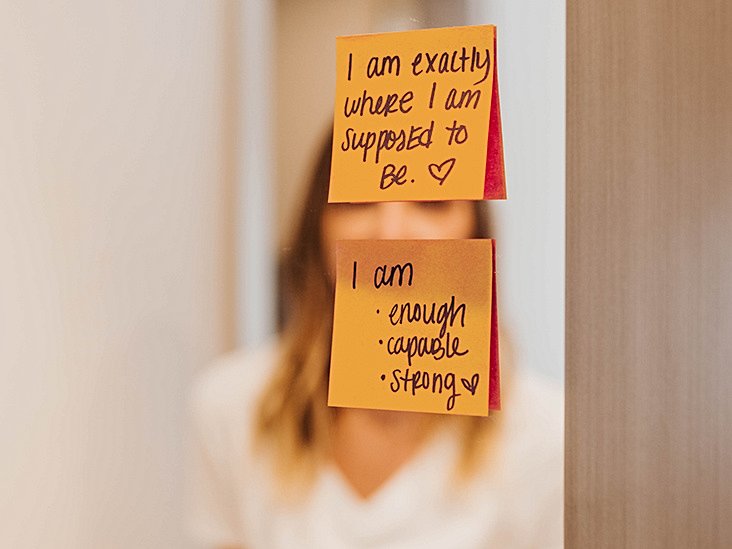 I am exactly
where I am
supposed to
Be. ♡
I am
· enough
· capable
· strong ♡